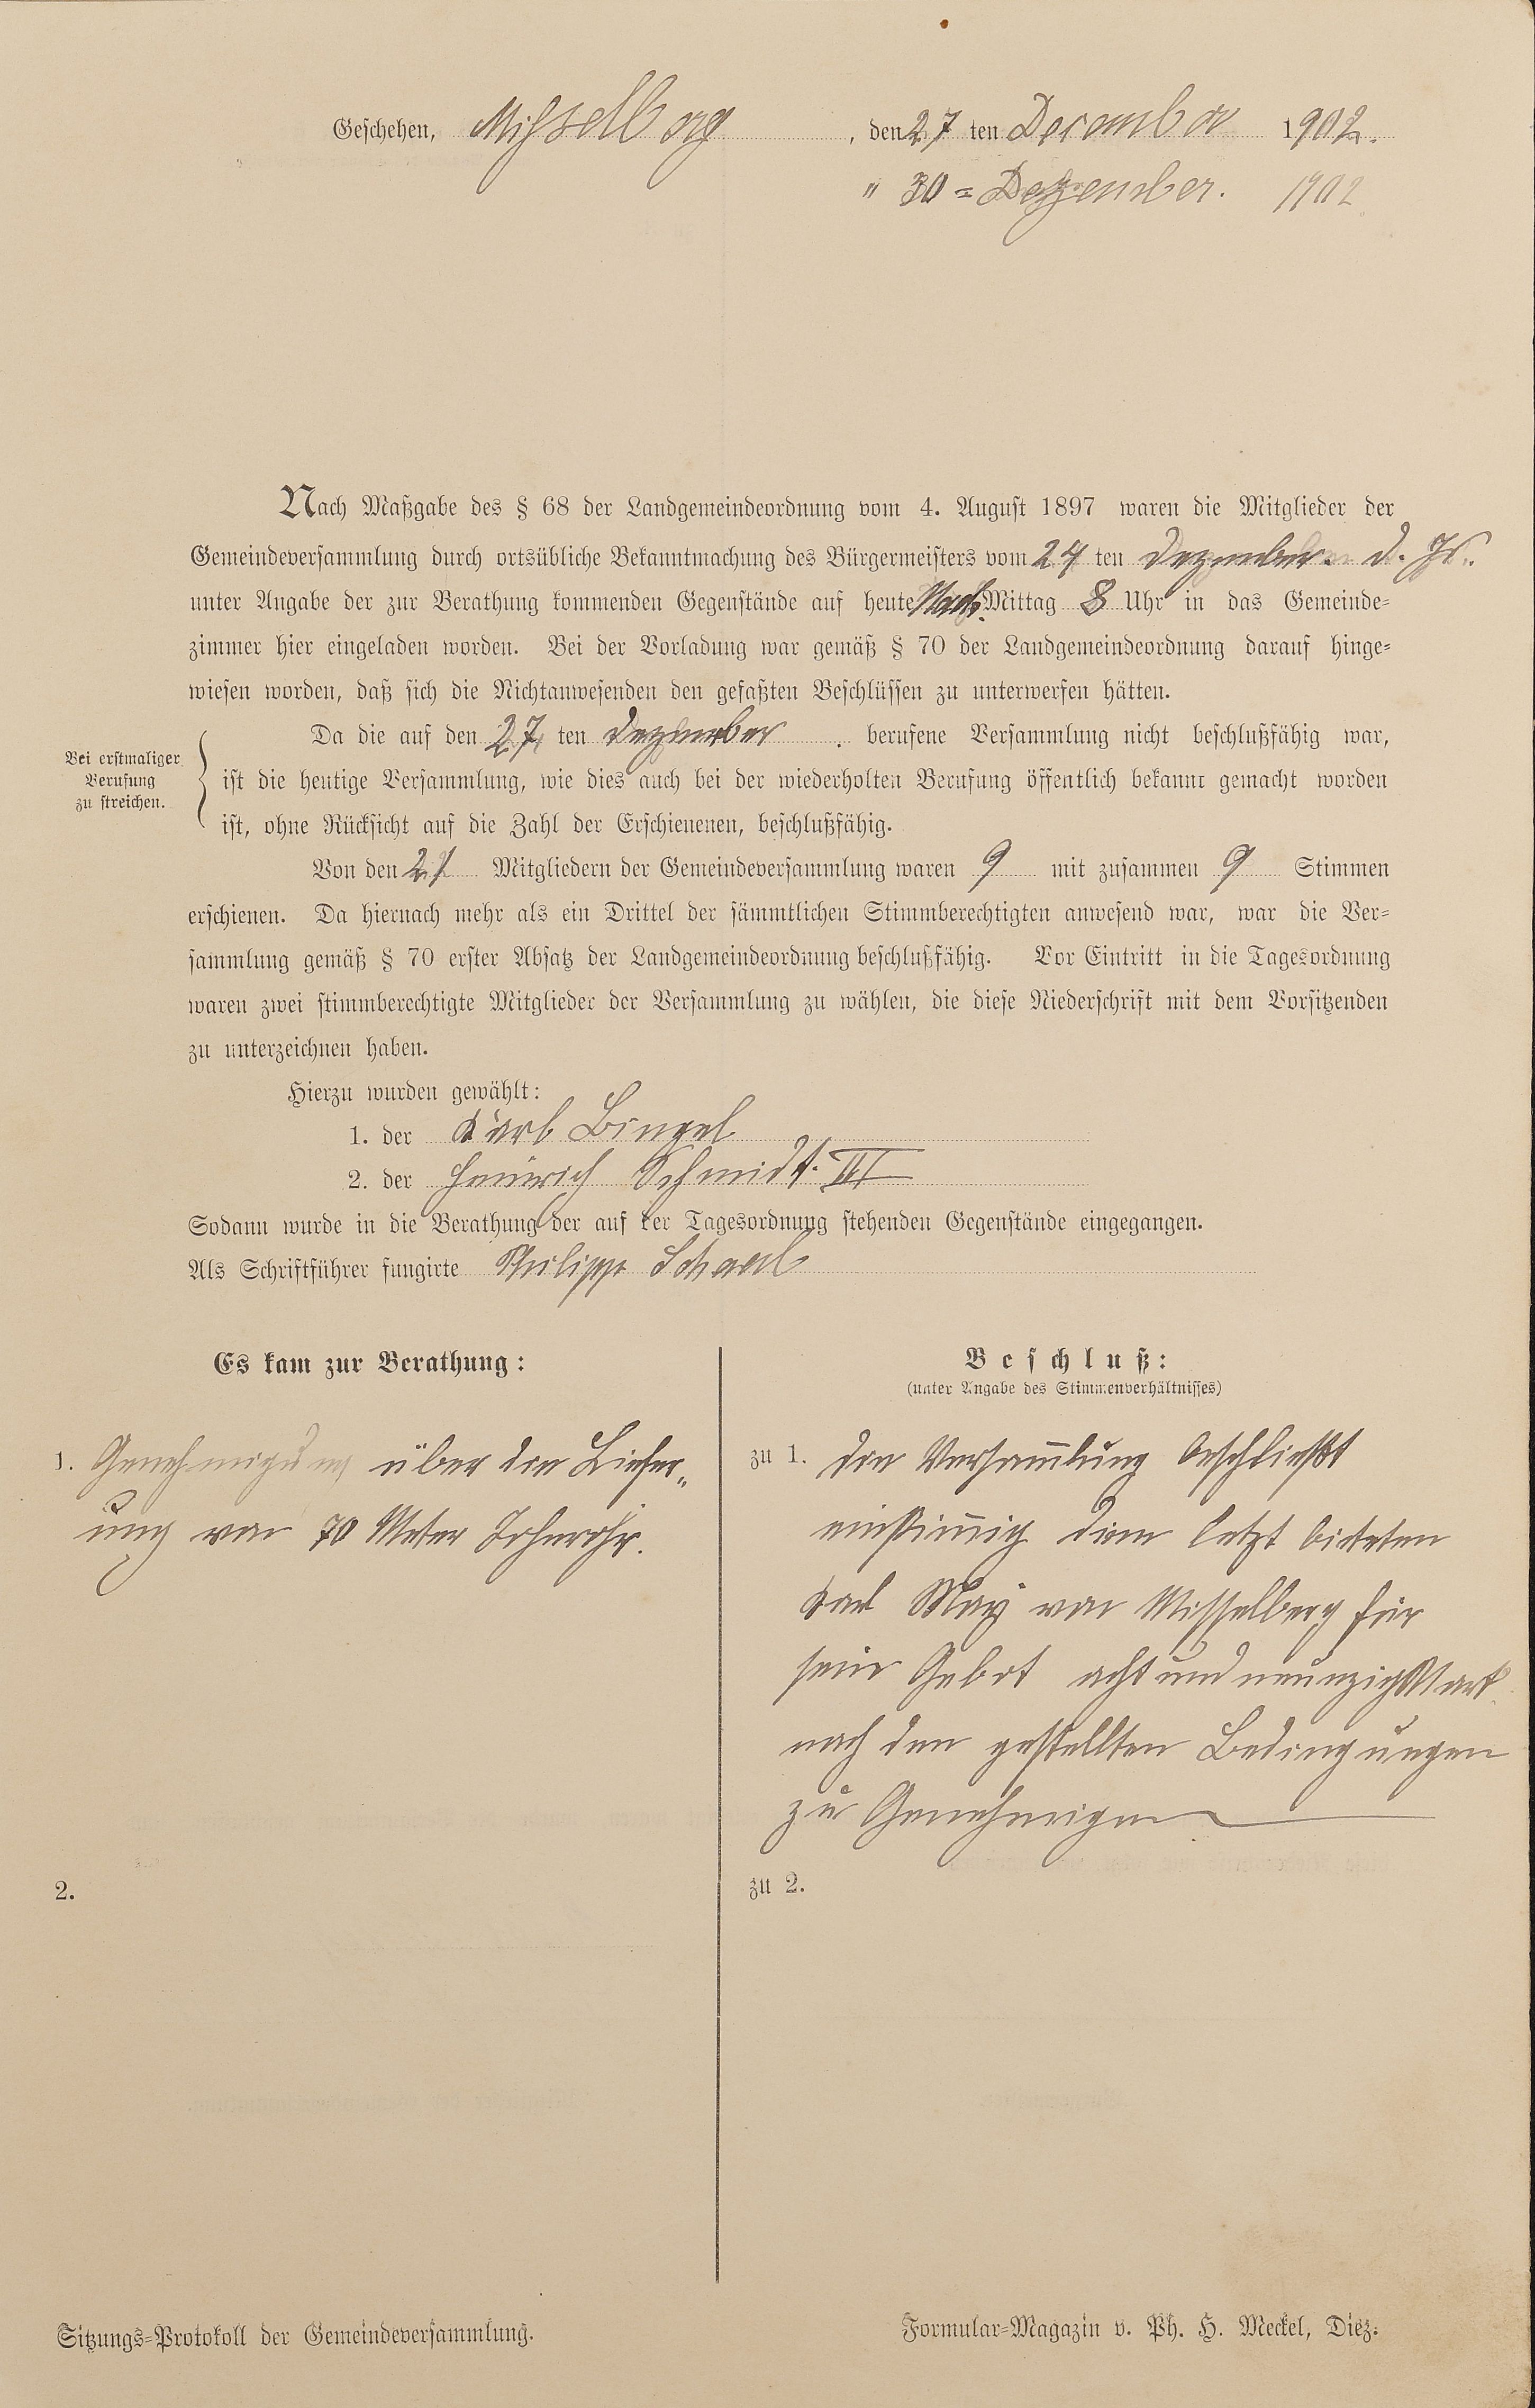 Geschehen, Misselberg, den 27 ten December 1902.
" 30 = Dezember. 1902
Nach Maßgabe des § 68 der Landgemeindeordnung vom 4. August 1897 waren die Mitglieder der
Gemeindeversammlung durch ortsübliche Bekanntmachung des Bürgermeisters vom 24 ten Dezember. d. Js.
unter Angabe der zur Berathung kommenden Gegenstände auf heute Nach. Mittag 8 Uhr in das Gemeinde-
zimmer hier eingeladen worden. Bei der Vorladung war gemäß § 70 der Landgemeindeordnung darauf hinge-
wiesen worden, daß sich die Nichtanwesenden den gefaßten Beschlüssen zu unterwerfen hätten.
Da die auf den 27 ten Dezember. berufene Versammlung nicht beschlußfähig war,
Bei erstmaliger
Berufung
zu streichen.
ist die heutige Versammlung, wie dies auch bei der wiederholten Berufung öffentlich bekannt gemacht worden
ist, ohne Rücksicht auf die Zahl der Erschienenen, beschlußfähig.
Von den 21 Mitgliedern der Gemeindeversammlung waren 9 mit zusammen 9 Stimmen
erschienen. Da hiernach mehr als ein Drittel der sämmtlichen Stimmberechtigten anwesend war, war die Ver-
sammlung gemäß § 70 erster Absatz der Landgemeindeordnung beschlußfähig. Vor Eintritt in die Tagesordnung
waren zwei stimmberechtigte Mitglieder der Versammlung zu wählen, die diese Niederschrift mit dem Vorsitzenden
zu unterzeichnen haben.
Hierzu wurden gewählt:
1. der Karl Bingel
2. der Heinrich Schmidt. III
Sodann wurde in die Berathung der auf der Tagesordnung stehenden Gegenstände eingegangen.
Als Schriftführer fungirte Philipp
Es kam zur Berathung:
1. Genehmigung über die Liefer-
ung von 70 Meter
2.
Beschluß:
(unter Angabe des Stimmenverhältnisses)
zu 1. Die Versammlung beschließt
einstimmig dem letzt bieteten
Karl May von Misselberg für
sein Gebot achtundneunzig Mark
nach den gestellten Bedingungen
zu Genehmigen
zu 2.
Sitzungs-Protokoll der Gemeindeversammlung.
Formular-Magazin v. Ph. H. Meckel, Diez.